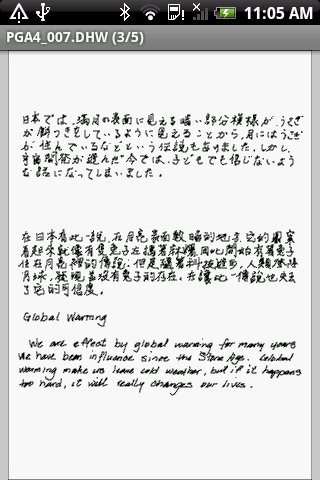 11:05 AM
PGA4_007.DHW (3/5)
日本では、満月の表面に見える暗い部分模様が、うさぎ
が餅つきをしているように見えることから、月にはうさぎ
が住んでいるなどという伝説もありました。しかし、
宇宙開発が進んだ今では、子どもでも信じないよう
な話になってしまいました。
在日本有此一說,在月亮表面較暗的地方,它的
看起來就像有隻兔子在搗著麻糬,因此開始有著兔子
住在月亮裡的傳說。但是隨著科技進步,人類登陸
月球,發現並沒有兔子的存在。在讓此一傳說也失去
了它的可信度。
Global Warming
We are effect by global warming for many years
We have been influence since the Stone Age. Global
warming make us leave cold weather, but if it happens
too hard, it will really changes our lives.